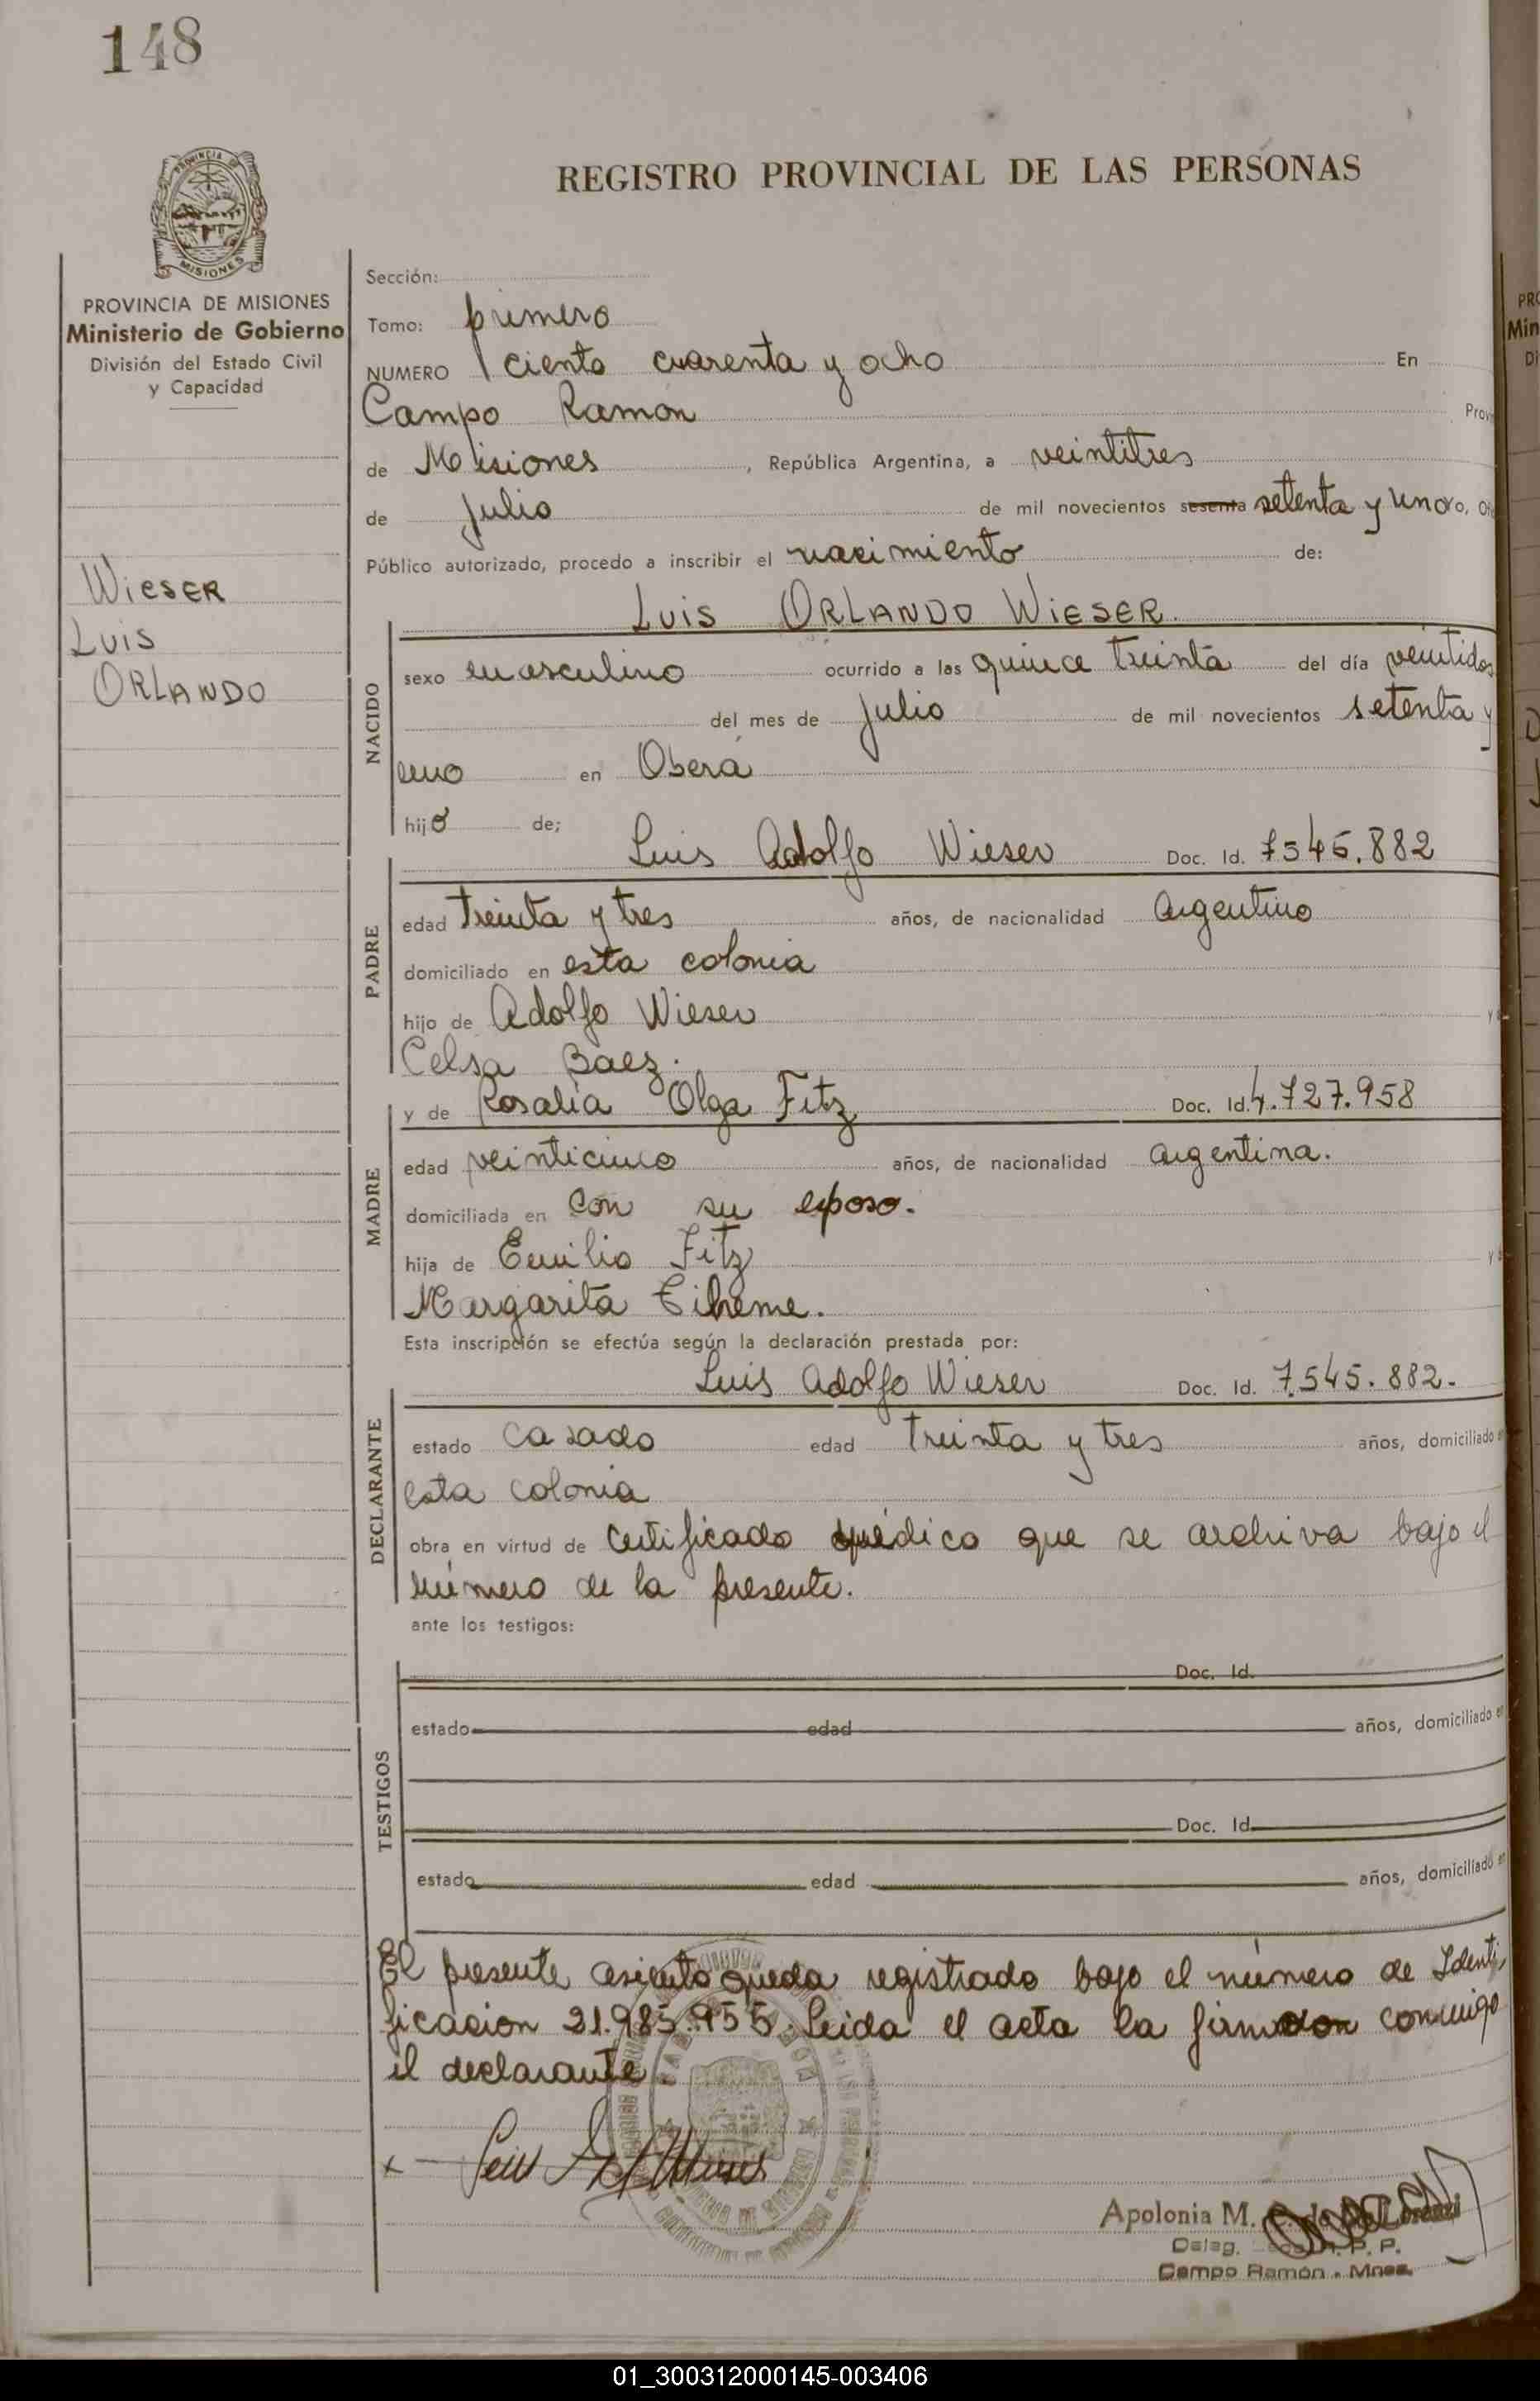 148
REGISTRO PROVINCIAL DE LAS PERSONAS
PROVINCIA DE MISIONES
PROVINCIA DE MISIONES
Ministerio de Gobierno
División del Estado Civil
y Capacidad
WIESER
LUIS
ORLANDO
Sección:
Tomo: primero
NUMERO ciento cuarenta y ocho En
Campo Ramon Prov
de Misiones, República Argentina, a veintitres
de Julio de mil novecientos sesenta setenta y uno
Público autorizado, procedo a inscribir el nacimiento de:
LUIS ORLANDO WIESER.
NACIDO
sexo masculino ocurrido a las quince treinta del día veintidos
del mes de Julio de mil novecientos setenta y
uno en Oberá
hijo de; Luis Adolfo Wieser Doc. Id. 7545.882
PADRE
edad treinta y tres años, de nacionalidad argentino
domiciliado en esta colonia
hijo de Adolfo Wieser y
Celsa Baez.
y de Rosalia Olga Fitz Doc. Id. 4.727.958
MADRE
edad veinticinco años, de nacionalidad argentina.
domiciliada en con su esposo.
hija de Emilio Fitz y
Margarita
Esta inscripción se efectúa según la declaración prestada por:
Luis Adolfo Wieser Doc. Id. 7.545.882.
DECLARANTE
estado casado edad treinta y tres años, domiciliado
esta colonia
obra en virtud de certificado médico que se archiva bajo el
número de la presente.
ante los testigos:
TESTIGOS
Doc. Id.
estado edad años, domiciliado en
Doc. Id.
estado edad años, domiciliado en
El presente asiento queda registrado bajo el número de Identi
ficacion 21.985.955. Leida el acta la firma conmigo
el declarante.
Apolonia M.
Deleg. R. P. P.
Campo Ramón - Mnes.
01_300312000145-003406